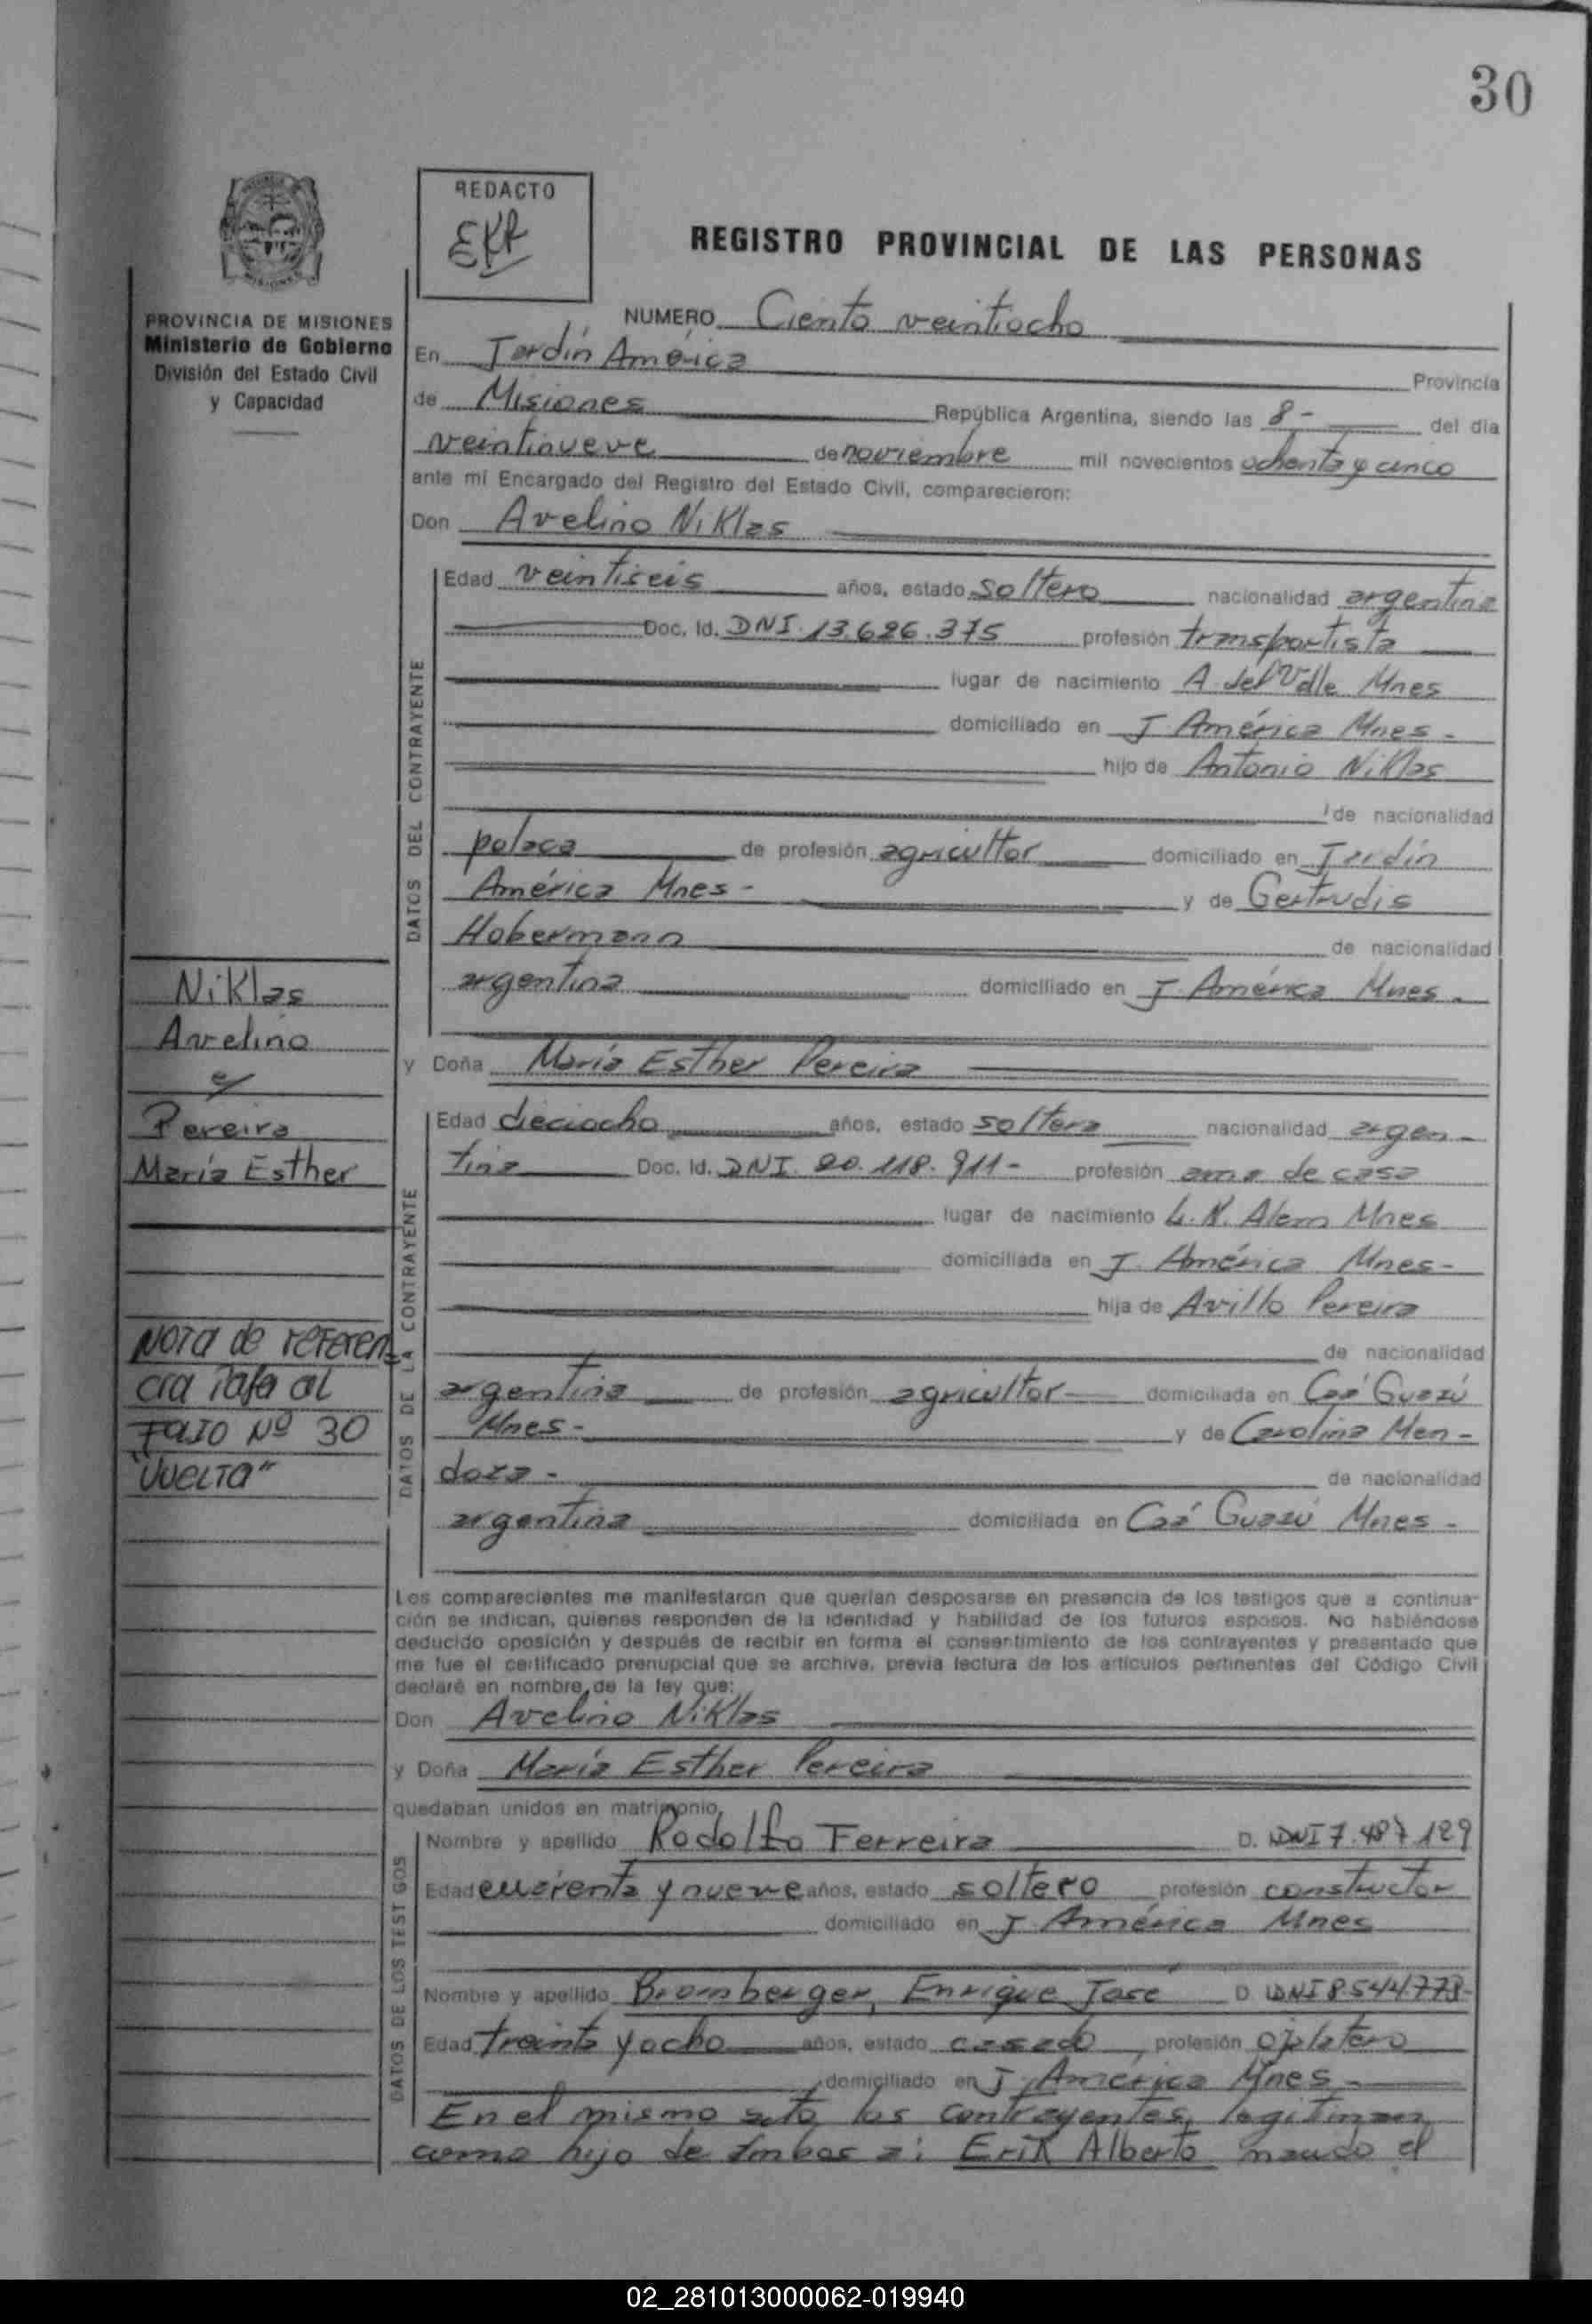 30
REDACTO
EKR
REGISTRO PROVINCIAL DE LAS PERSONAS
PROVINCIA DE MISIONES
Ministerio de Gobierno
División del Estado Civil
y Capacidad
NUMERO Ciento veintiocho
En Jardín América Provincia
de Misiones República Argentina, siendo las 8- del día
veintinueve de noviembre mil novecientos ochenta y cinco
ante mí Encargado del Registro del Estado Civil, comparecieron:
Don Avelino Niklas
DATOS DEL CONTRAYENTE
Edad veintiseis años, estado soltero nacionalidad argentina
Doc. Id. DNI. 13.626.375 profesión transportista
lugar de nacimiento A. del Valle Mnes
domiciliado en J. América Mnes-
hijo de Antonio Niklas
de nacionalidad
polaca de profesión agricultor domiciliado en Jardín
América Mnes- y de Gertrudis
Hobermann de nacionalidad
argentina domiciliado en J. América Mnes.
Niklas
Avelino
e/
Pereira
María Esther
y Doña María Esther Pereira
DATOS DE LA CONTRAYENTE
Edad dieciocho años, estado soltera nacionalidad argen-
tina Doc. Id. DNI. 20.118.911- profesión ama de casa
lugar de nacimiento L. N. Alem Mnes
domiciliada en J. América Mnes-
hija de Avillo Pereira
de nacionalidad
argentina de profesión agricultor domiciliada en Caá Guazú
Mnes- y de Carolina Men-
doza- de nacionalidad
argentina domiciliada en Caá Guazú Mnes-
Nota de referen
cia Pasa al
Folio Nº 30
"Vuelta"
Los comparecientes me manifestaron que querían desposarse en presencia de los testigos que a continua-
ción se indican, quienes responden de la identidad y habilidad de los futuros esposos. No habiéndose
deducido oposición y después de recibir en forma el consentimiento de los contrayentes y presentado que
me fue el certificado prenupcial que se archiva, previa lectura de los artículos pertinentes del Código Civil
declaré en nombre de la ley que:
Don Avelino Niklas
y Doña María Esther Pereira
quedaban unidos en matrimonio,
DATOS DE LOS TESTIGOS
Nombre y apellido Rodolfo Ferreira D. DNI 7.487.129
Edad cuarenta y nueve años, estado soltero profesión constructor
domiciliado en J. América Mnes
Nombre y apellido Bromberger, Enrique José D. DNI 8.544.773-
Edad treinta y ocho años, estado casado, profesión
domiciliado en J. América Mnes-
En el mismo acto los contrayentes, legitiman
como hijo de ambos a: Erik Alberto nacido el
02_281013000062-019940